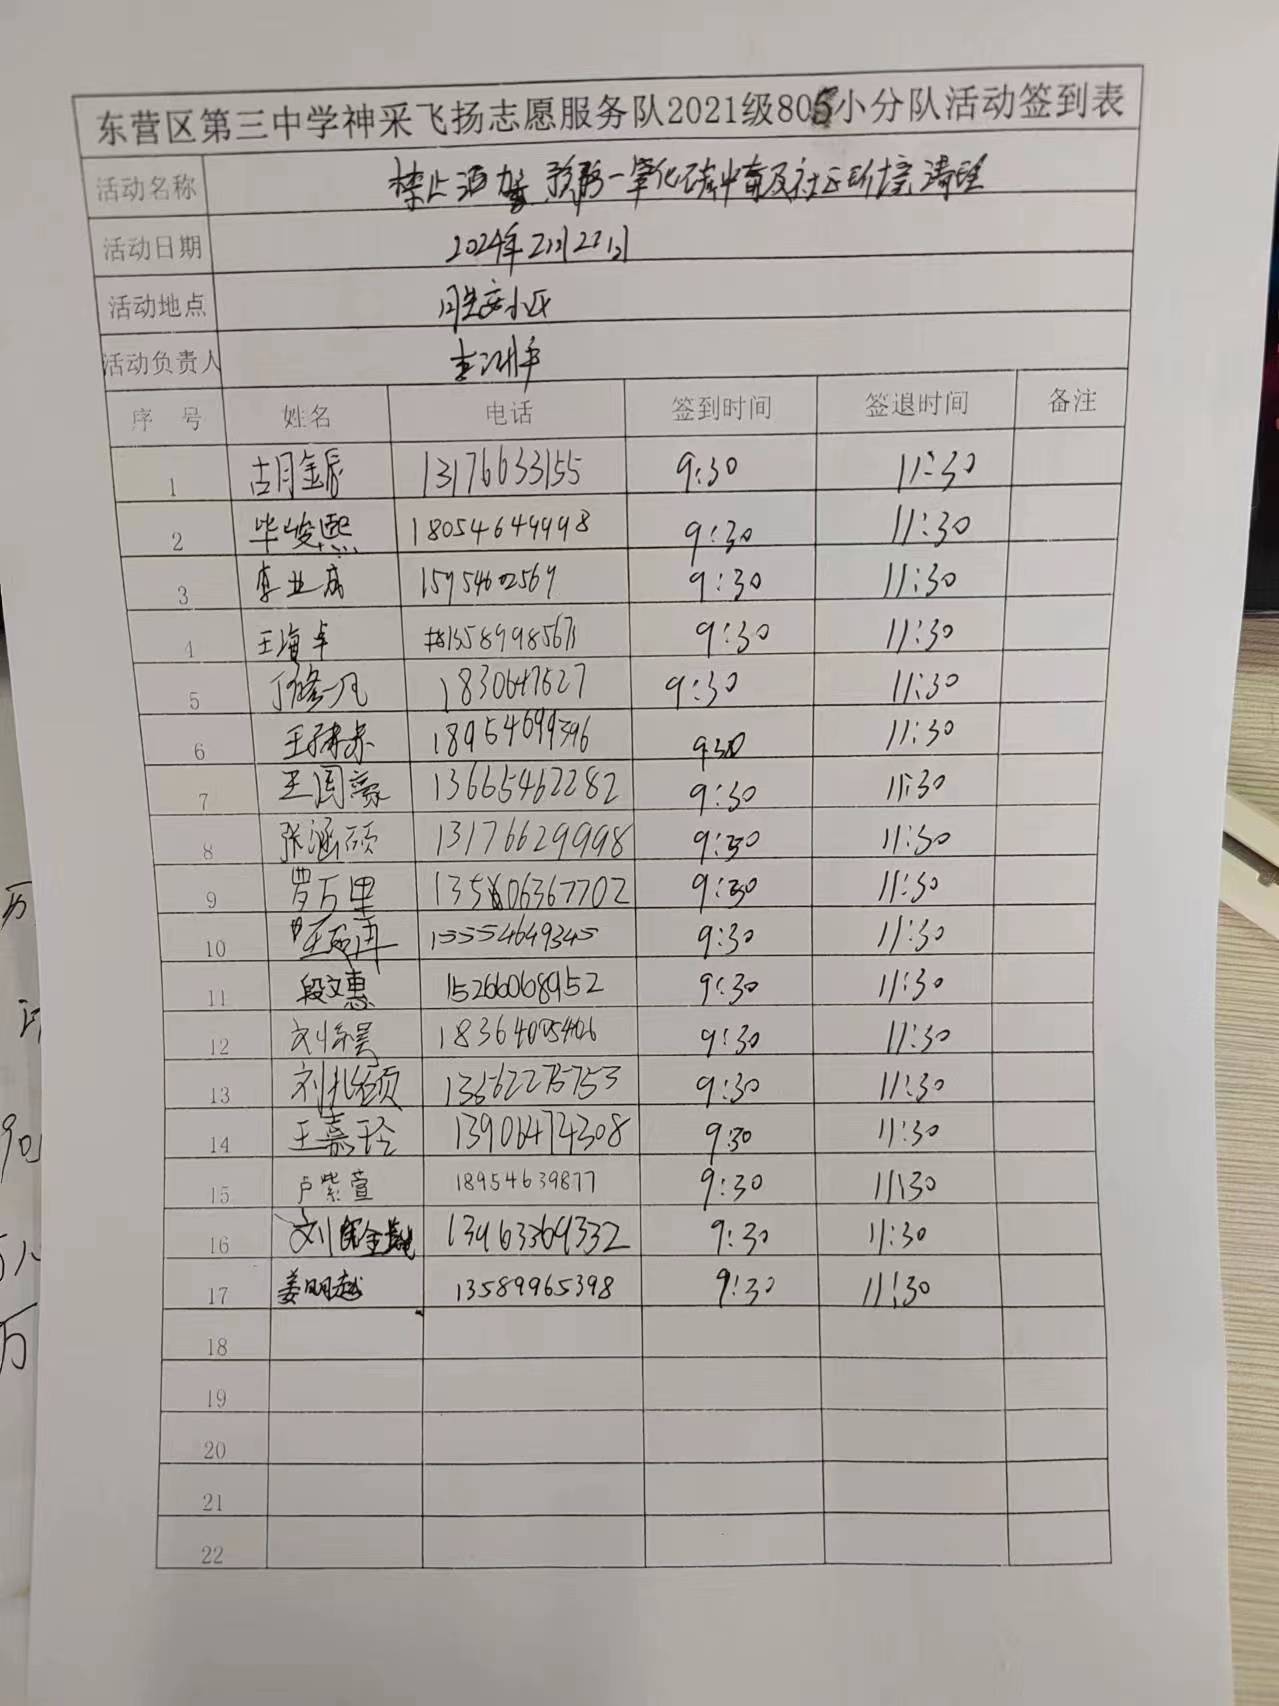 东营区第三中学神采飞扬志愿服务队2021级805小分队活动签到表
活动名称 禁止酒驾、预防一氧化碳中毒及社区环境清理
活动日期 2024年2月22日
活动地点 小区
活动负责人
序 号 姓名 电话 签到时间 签退时间 备注
1 胡金辰 13176633155 9:30 11:30
2 毕峻熙 18054649998 9:30 11:30
3 李业成 15954602569 9:30 11:30
4 王海卓 13589985671 9:30 11:30
5 丁修一凡 1830647627 9:30 11:30
6 18954699396 9:30 11:30
7 王国豪 13665462282 9:30 11:30
8 张涵硕 13176629998 9:30 11:30
9 罗万里 13506367702 9:30 11:30
10 15554649345 9:30 11:30
11 段文惠 15266068952 9:30 11:30
12 9:30 11:30
13 9:30 11:30
14 王嘉玲 13906474308 9:30 11:30
15 卢紫萱 18954639877 9:30 11:30
16 刘 13963369332 9:30 11:30
17 姜明越 13589965398 9:30 11:30
18
19
20
21
22